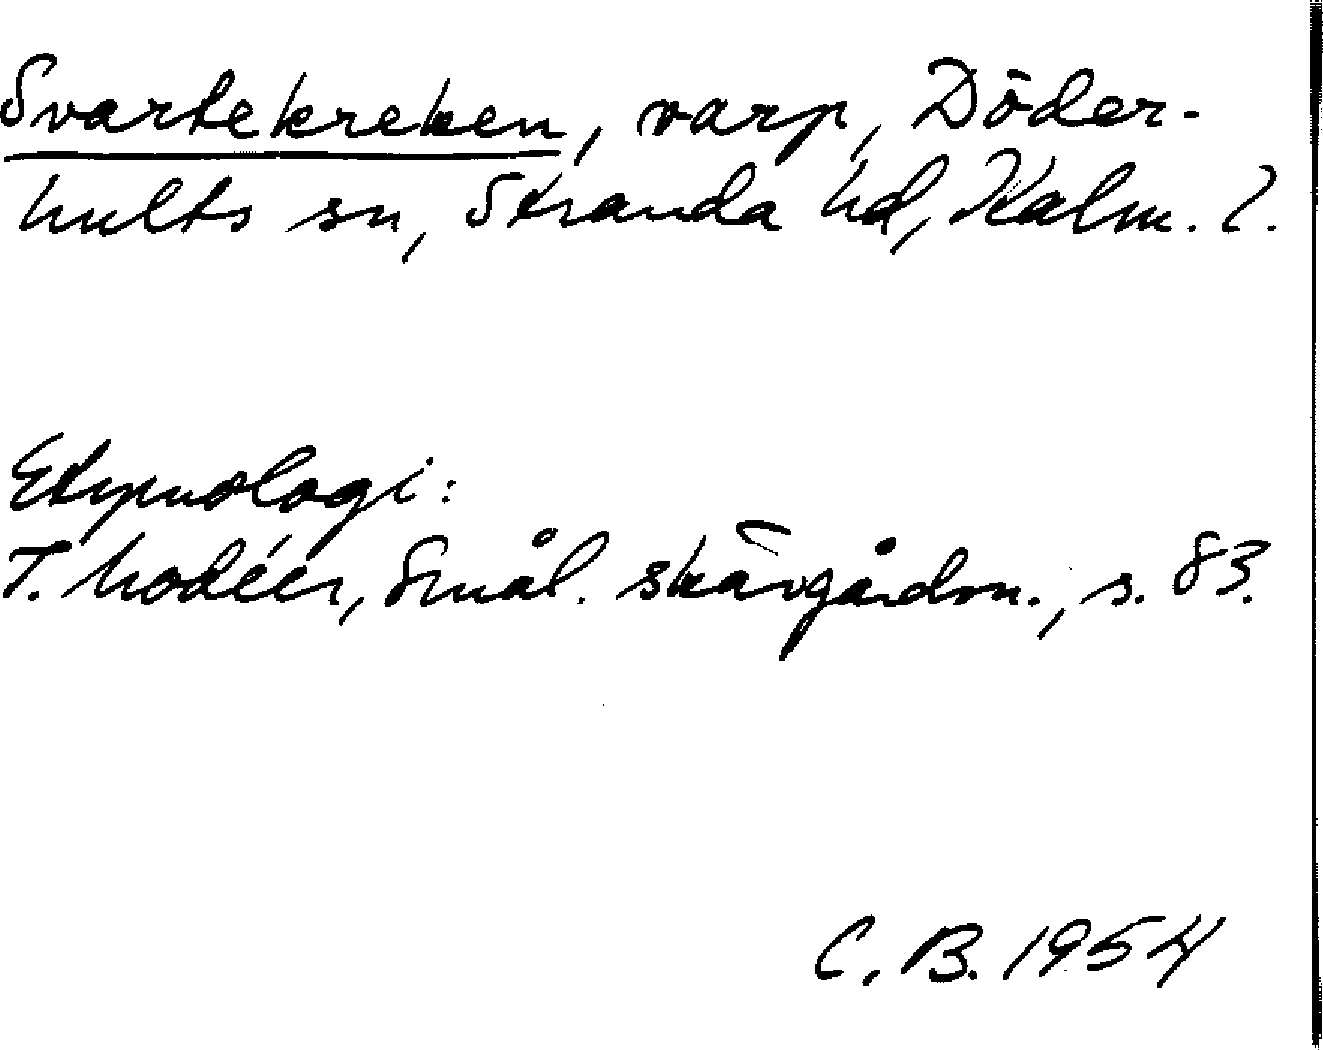 Svartekreken, varp, Döder-
hults sn, Stranda hd, Kalm. l.
Etymologi:
I. Modéer, Smål. skärgårdsn., s. 83.
C. B. 1954